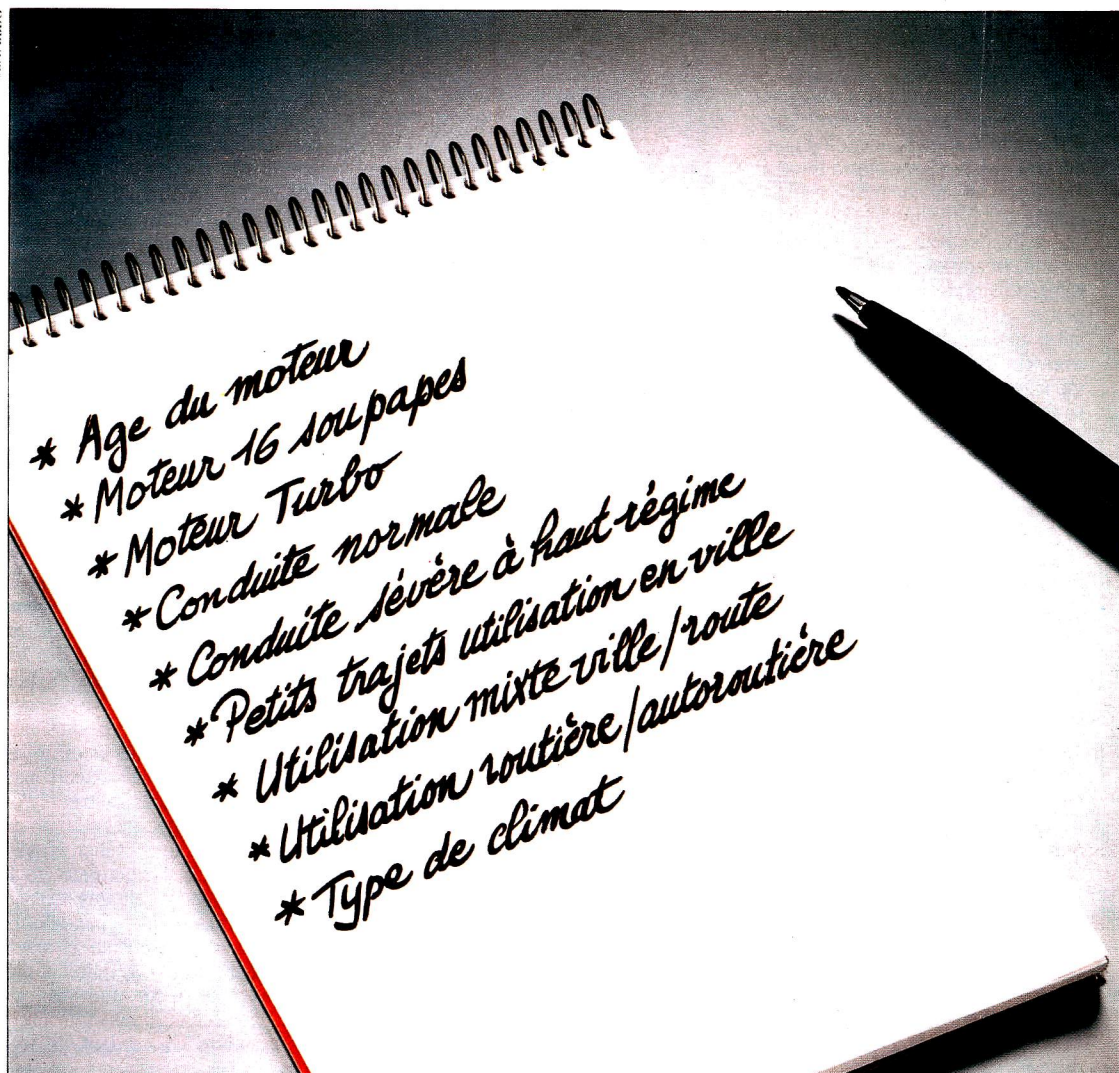 * Age du moteur
* Moteur 16 soupapes
* Moteur Turbo
* Conduite normale
* Conduite sévère à haut régime
* Petits trajets utilisation en ville
* Utilisation mixte ville/route
* Utilisation routière/autoroutière
* Type de climat